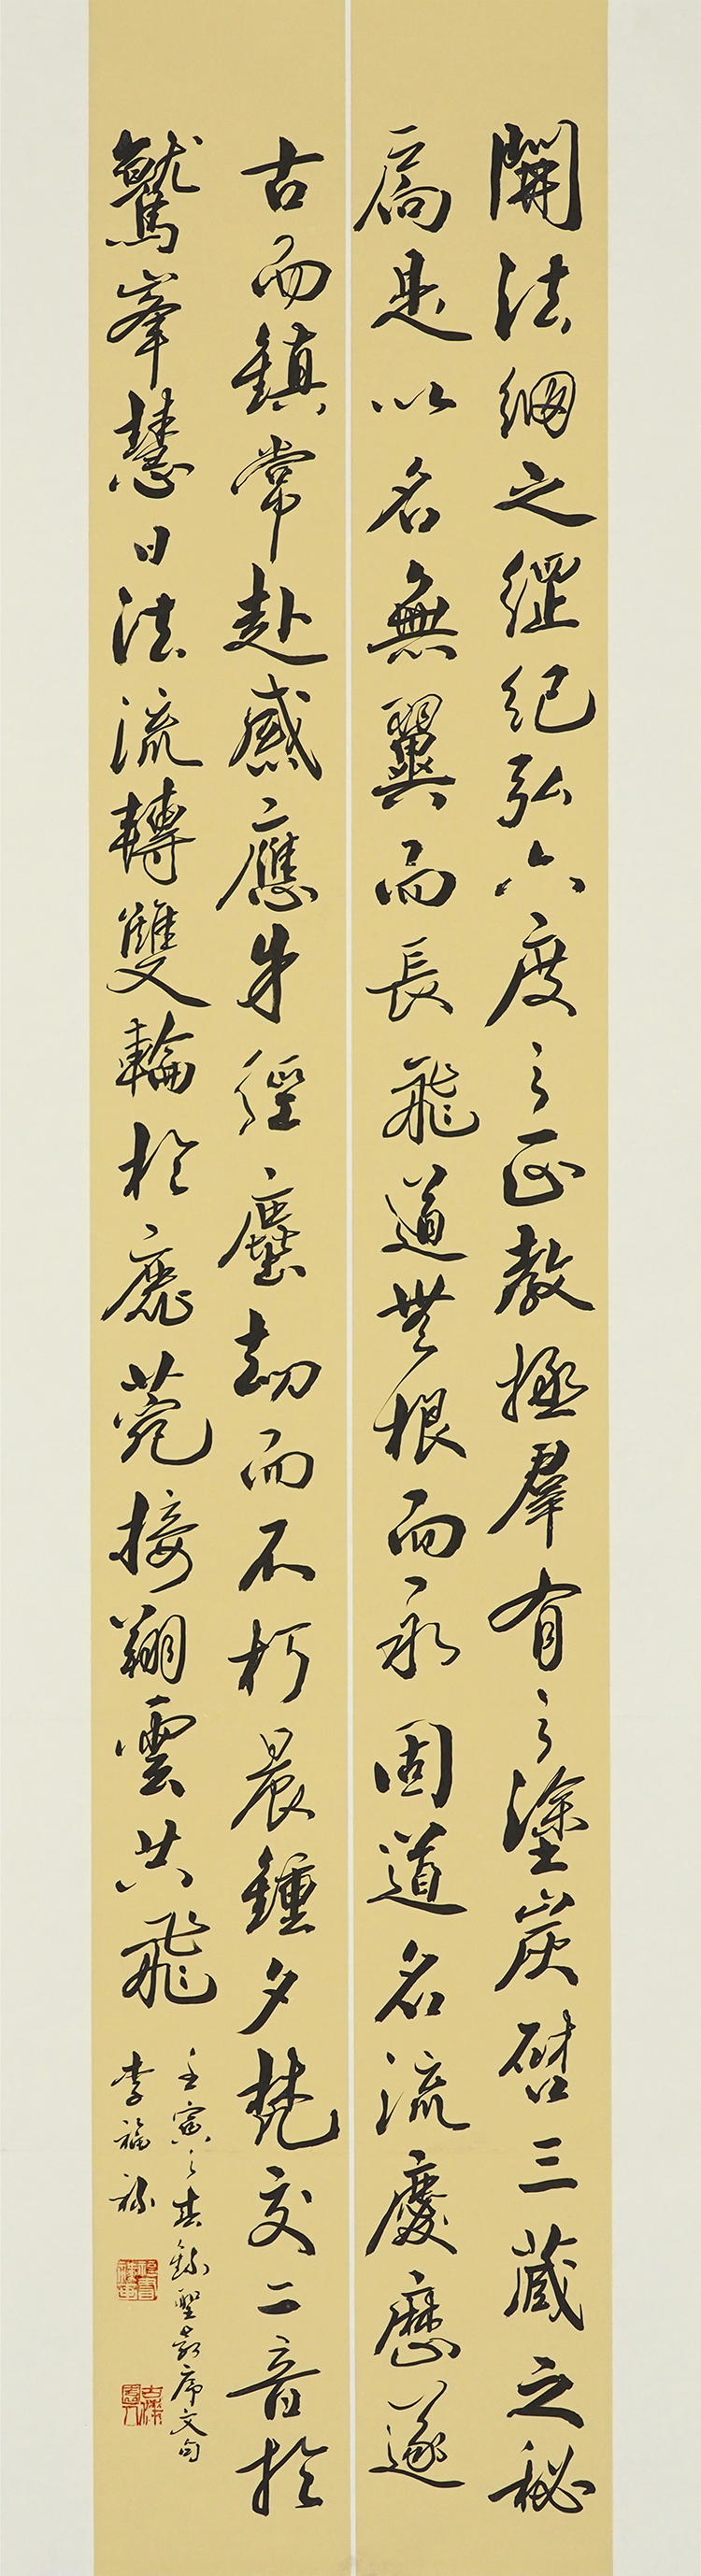 開法網之綱紀弘六度之正教拯羣有之塗炭啓三藏之秘
扃是以名無翼而長飛道無根而永固道名流慶歷遂
古而鎮常赴感應身經塵劫而不朽晨鍾夕梵交二音於
鷲峯慧日法流轉雙輪於鹿菀接翔雲共飛
壬寅之春錄聖教序文句
李福祿